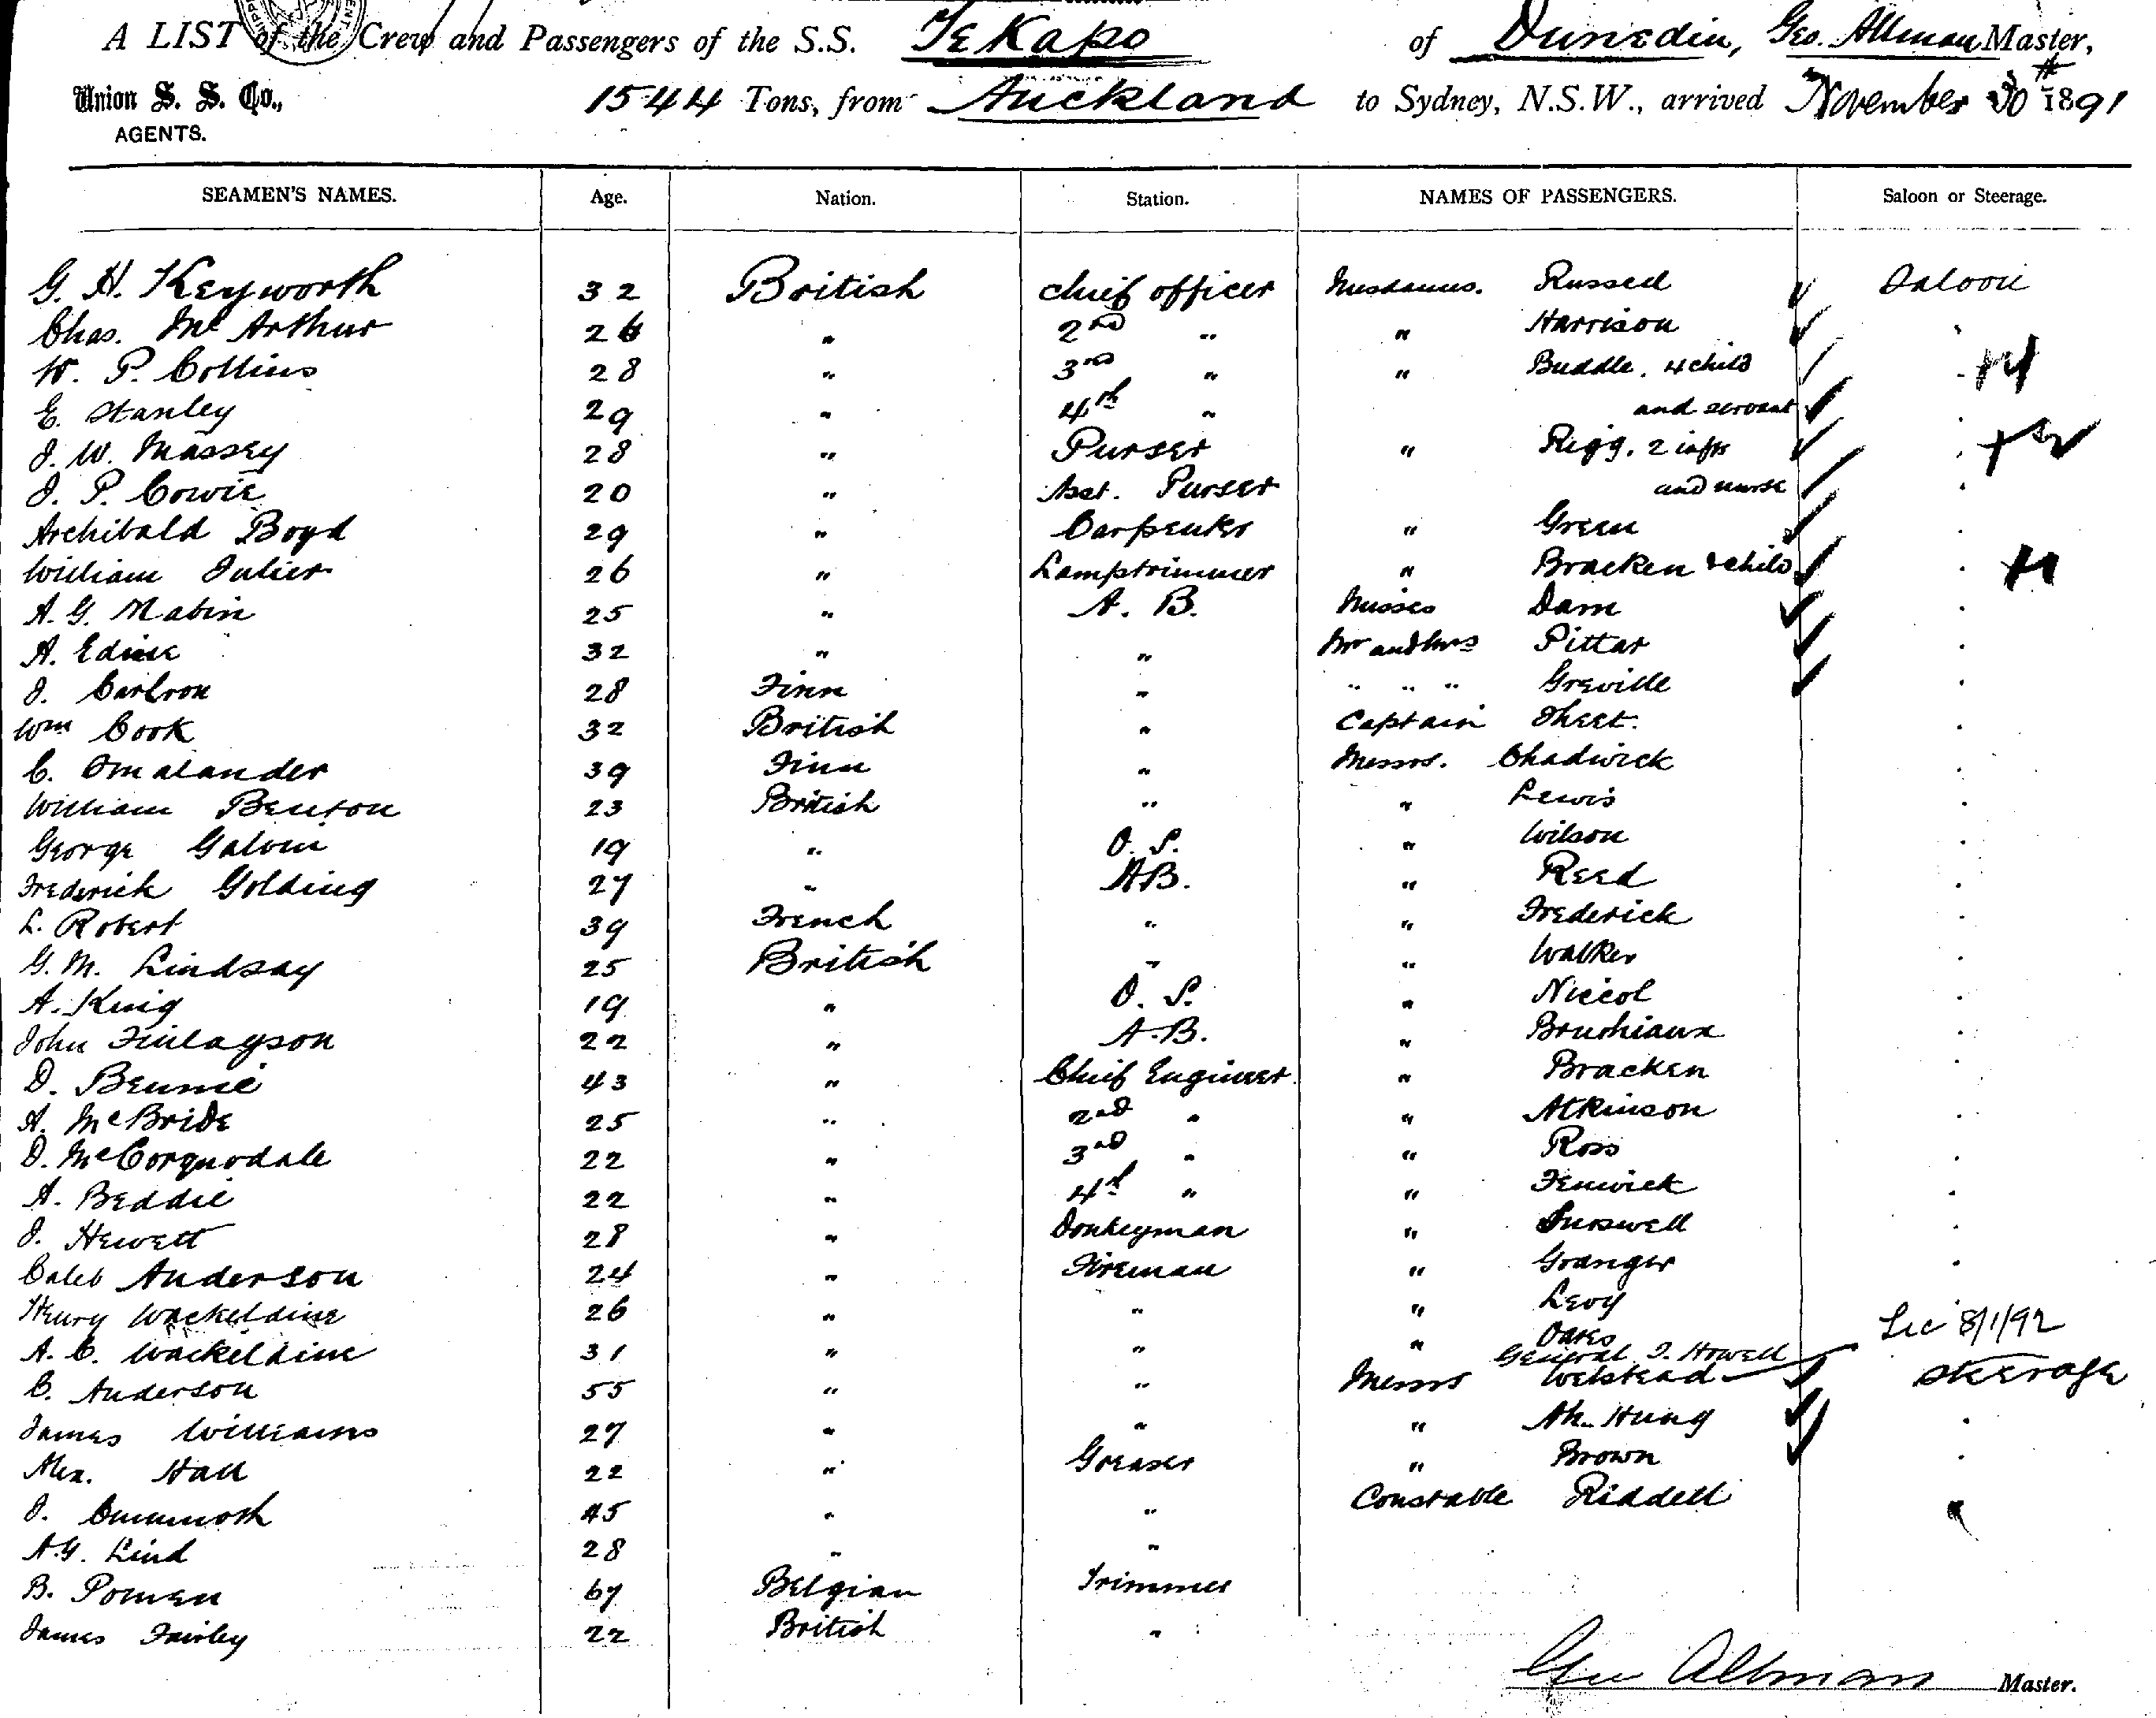 A LIST of the Crew and Passengers of the S.S. TeKapo of Dunedin, Geo. Allman Master,
Union S. S. Co., 1544 Tons, from Auckland to Sydney, N.S.W., arrived November 30th 1891
AGENTS.
SEAMEN'S NAMES. Age. Nation. Station. NAMES OF PASSENGERS. Saloon or Steerage.
G. H. Keyworth 32 British Chief officer Mesdames. Russell Saloon
Chas. McArthur 26 " 2nd " " Harrison "
W. P. Collins 28 " 3rd " " Buddle. 4 child
E. Stanley 29 " 4th " and servant
J. W. Massey 28 " Purser " Rigg. 2 infts
J. P. Cowie 20 " Asst. Purser and nurse
Archibald Boyd 29 " Carpenter " Green
William Julier 26 " Lamptrimmer " Bracken & child
A. G. Mabin 25 " A. B. Misses Dam
A. 32 " " Mr and Mrs Pittar
J. Carlson 28 Finn " " " " Greville
Wm Cook 32 British " Captain Skeet.
C. Omalander 39 Finn " Messrs. Chadwick
William Benton 23 British " " Lewis
George Galvin 19 " O. S. " Wilson
Frederick Golding 27 " AB. " Reed
L. Robert 39 French " " Frederick
G. M. Lindsay 25 British " " Walker
A. King 19 " O. S. " Niccol
John Finlayson 22 " A.B. "
D. Bennie 43 " Chief Engineer " Bracken
A. McBride 25 " 2nd " " Atkinson
D. McCorquodale 22 " 3rd " " Ross
A. Beddie 22 " 4th " " Fenwick
J. Hewett 28 " Donkeyman "
Caleb Anderson 24 " Fireman " Granger
Henry Wackeldine 26 " " " Levy
A. C. Wackeldine 31 " " " Oakes 8/1/92
General J. Howell
C. Anderson 55 " " Messrs Welstead Steerage
James Williams 27 " " " Ah. Hung
Alex. Hall 22 " Greaser " Brown
J. 45 " " Constable Riddell "
A.G. Lind 28 " "
B. Pomen 67 Belgian Trimmer
James Fairley 22 British "
Geo Allman Master.